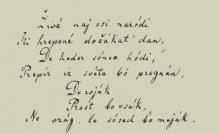 Živé naj osi narodi
hrepené dočákat' dan,
De koder sónce hódi,
Prepir iz svéta bo pregnán,
De roják
Prost bo vsák,
Ne vrág, le sósed bo meják.